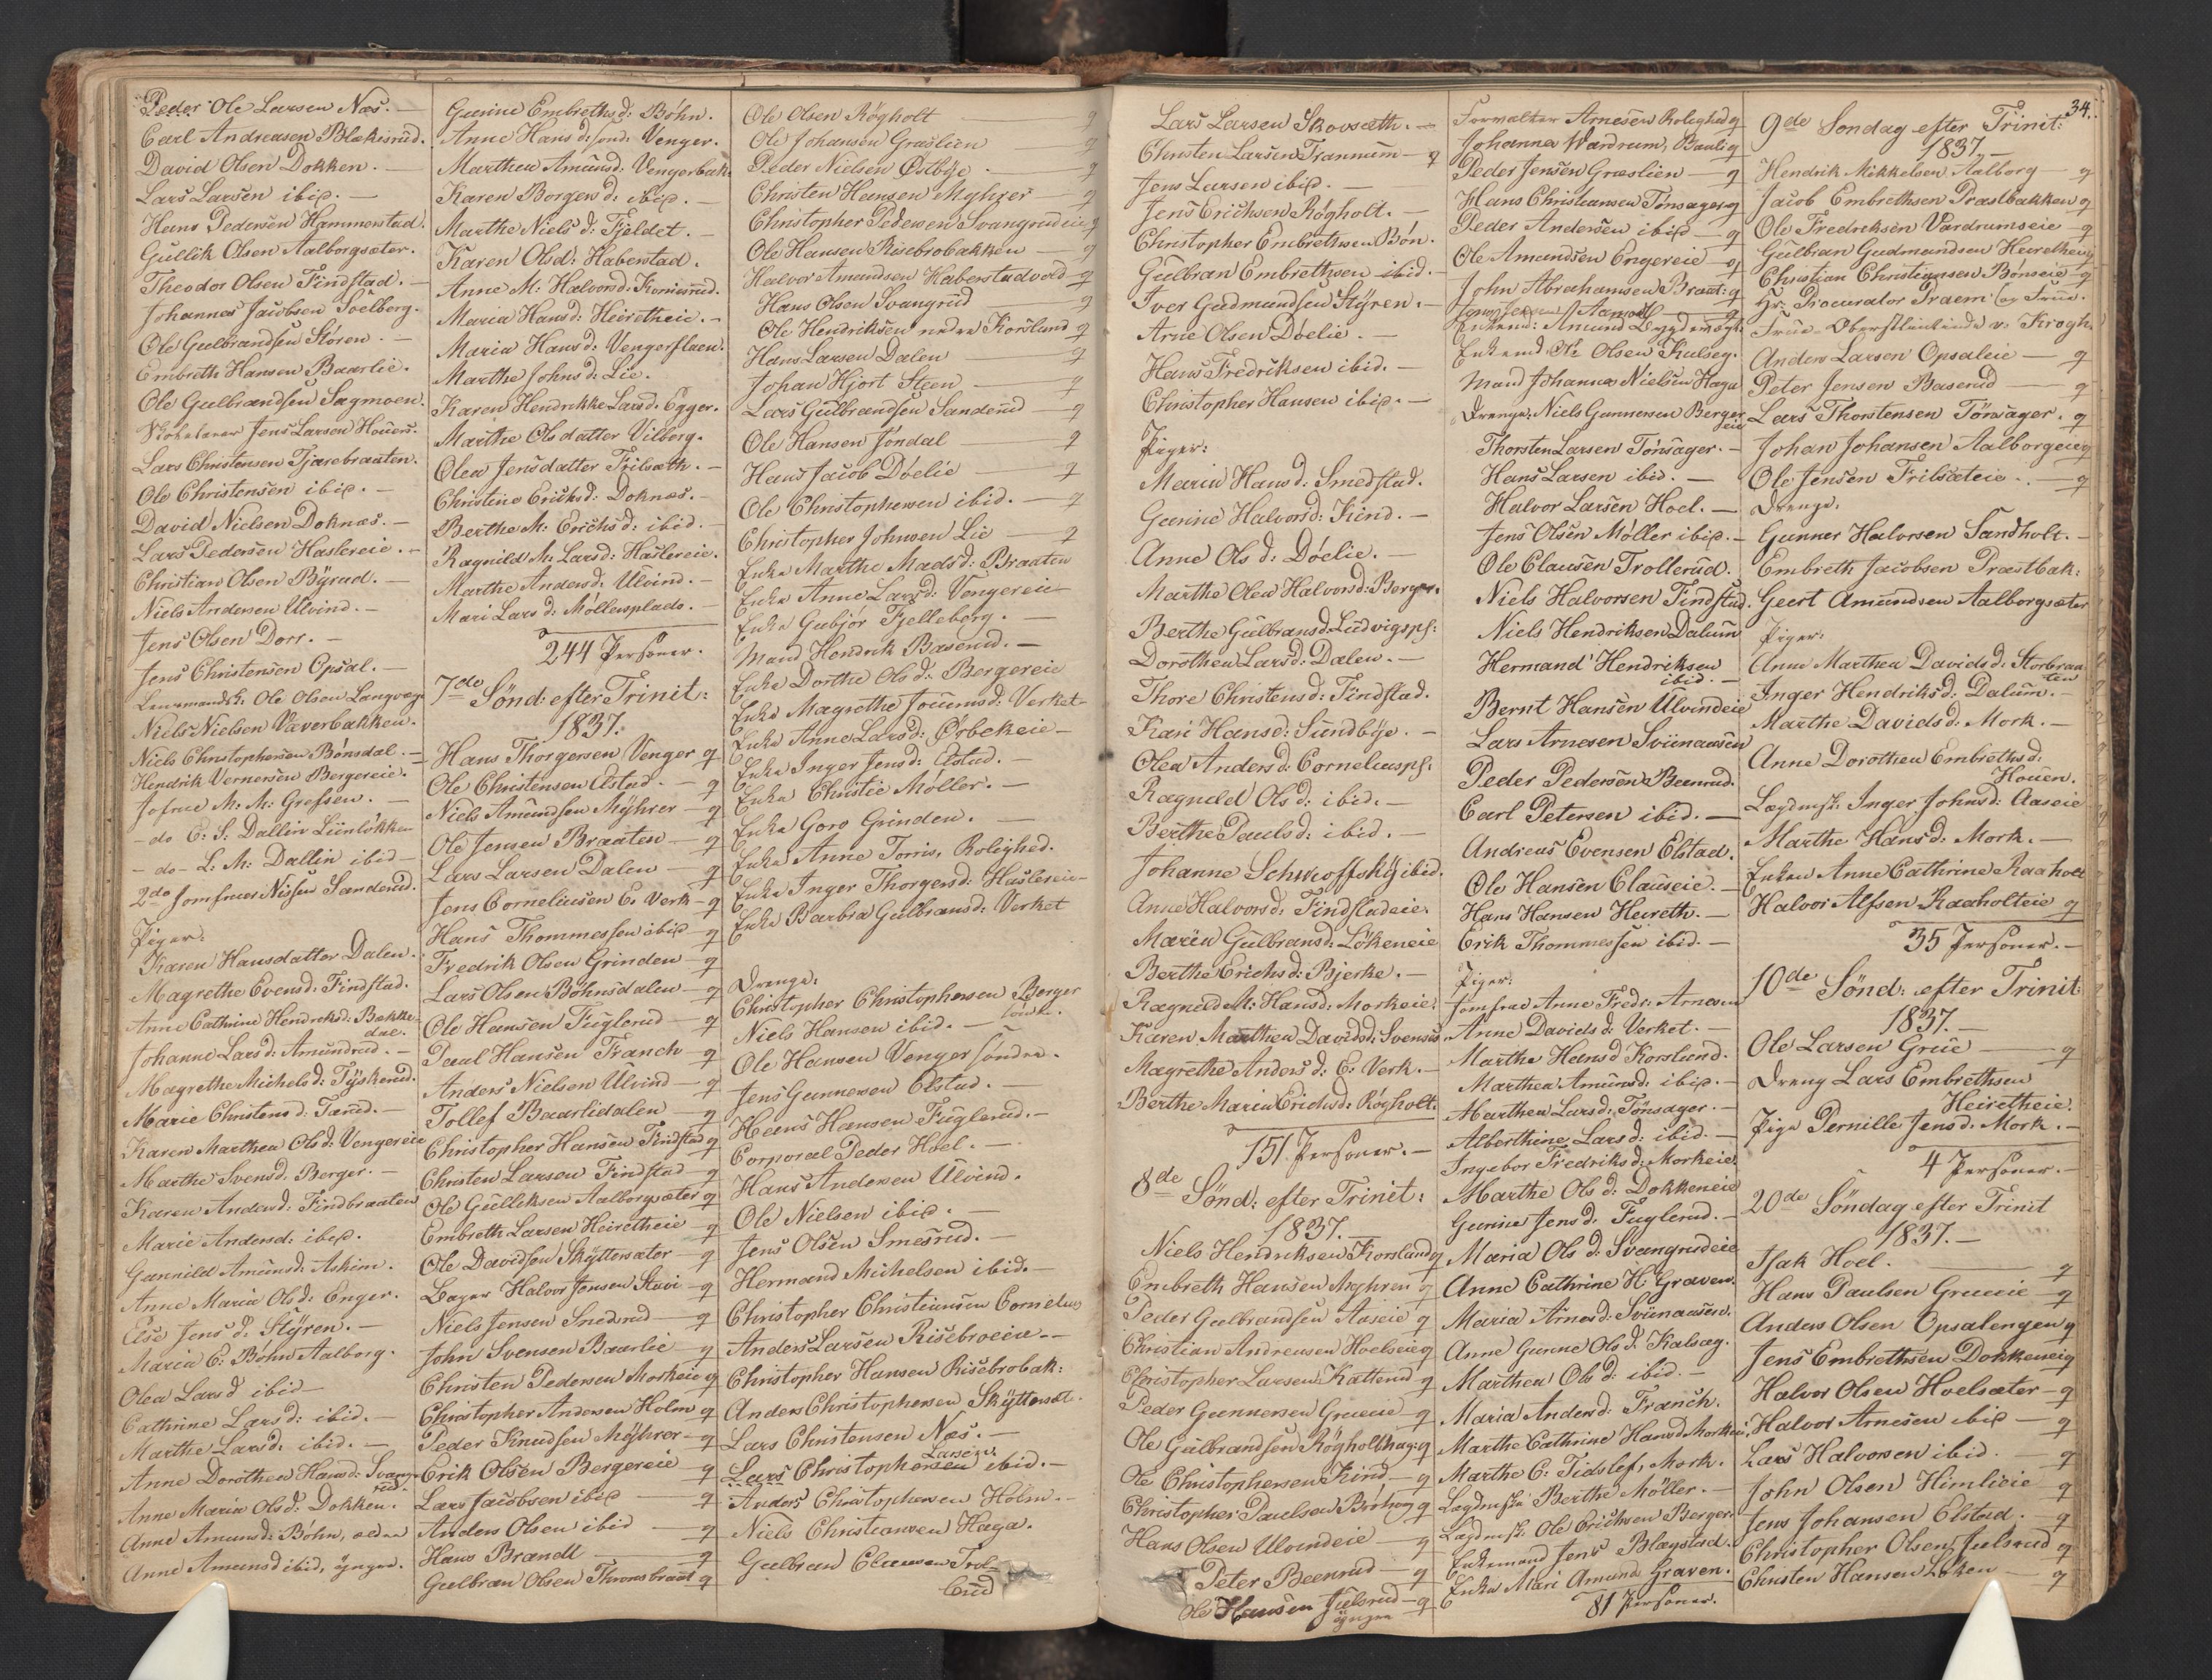 Peder Ole Larsen Næs. —
Carl Andreasen Blakisrud.
David Olsen Dokken. —
Lars Larsen ibid. —
Hans Pedersen Hammerstad.
Gullik Olsen Aalborgsæter.
Theodor Olsen Findstad. —
Johannes Jacobsen Soelberg.
Ole Gulbrandsen Stóren. —
Embreth Hansen Baarlie.
Ole Gulbrandsen Sagmoen.
Jens Larsen Houers.
Lars Christensen Tjærebraaten.
Ole Christensen ibid. —
David Nielsen Doknæs. —
Lars Pedersen Haslereie. —
Christian Olsen Byrud. —
Niels Andersen Ulvind. —
Jens Olsen Dorr. —
Jens Christensen Opsal. —
Ole Olsen Langvage
Niels Nielsen Væverbakken.
Niels Christophersen Bónsdal. —
Hendrik Vernersen Bergereie.
Jofrue M. M. Grefsen. —
— do E. S. Dallin Liinlökken
— do — L. M. Dallin ibid —
2de Jomfruer Nissen Sanderud.
Piger:
Karen Hansdatter Dalen.
Magrethe Evensd: Findstad.
Anne Cathrine Hendriksd: Bække-
dal.
Johanne Larsd: Amundrud. —
Magrethe Michelsd: Tyskerud.
Marie Christensd: Tærud. —
Karen Marthea Olsd: Vengereie
Marthe Svensd: Berger. —
Karen Andersd: Findbraaten
Marie Andersd: ibid.
Gunnild Amundsd: Askim.
Anne Maria Olsd: Enger.
Else Jensd: Styren. —
Maria E. Bohn Aalborg.
Olea Larsd ibid —
Cathrine Larsd: ibid. —
Marthe Larsd: ibid. —
Anne Dorothea Hansd: Svang-
rud.
Anne Maria Olsd: Dokken.
Anne Amundsd: Bóhn, ældre
Anne Amundsd ibid, yngre.
Gunine Embrethsd: Bóhn.
Anne Hansd: Sønd: Venger.
Marthea Amunsd: Vengerbak:
Karen Borgersd: ibid. —
Marthe Nielsd: Fjeldet. —
Karen Olsd: Haberstad.
Anne M: Halvorsd: Konisrud.
Maria Hansd: Heiretheie. —
Maria Hansd: Vengerflaen.
Marthe Johnsd: Lie.
Karen Hendrikke Larsd: Egger.
Marthe Olsdatter Vilberg.
Olea Jensdatter Frilsæth. —
Christine Ericksd: Doknæs. —
Berthe M: Erichsd: ibid. —
Ragnild M: Larsd: Haslereie.
Marthe Andersd: Ulvind. —
Mari Larsd: Møllersplads. —
244 Personer.
7de Sønd: efter Trinit:
1837.
Hans Thorgersen Venger q
Ole Christensen Elstad. — q
Niels Amundsen Myhrer — q
Ole Jensen Braaten — q
Lars Larsen Dalen — q
Jens Corneliusen E. Verk — q
Hans Thommessen ibid — q
Fredrik Olsen Grinden — q
Lars Olsen Bóhnsdalen — q
Ole Hansen Fuglerud — q
Paul Hansen Franch — q
Anders Nielsen Ulvind — q
Tollef Baarlidalen — q
Christopher Hansen Findstad q
Christen Larsen Findstad — q
Ole Gulliksen Aalborgsæter q
Embreth Larsen Heiretheie — q
Ole Davidsen Skyttersæter — q
Bager Halvor Jensen Stavi — q
Niels Jensen Snedrud — q
John Svensen Baarlie — q
Christen Pedersen Morkeie q
Christopher Andersen Holm q
Peder Knudsen Myhrer — q
Erik Olsen Bergereie — q
Lars Jacobsen ibid — q
Anders Olsen ibid — q
Hans Brandt — q
Gulbran Olsen Thronsbraat q
Ole Olsen Rógholt — q
Ole Johansen Graslien — q
Peder Nielsen Østbye — q
Christen Hansen Myhrer — q
Christopher Pedersen Svangrudeie q
Ole Hansen Risebrobakken — q
Halvor Amundsen Haberstadvold — q
Hans Olsen Svangrud — q
Ole Hendriksen nedre Korslund q
Hans Larsen Dalen — q
Johan Hjort Steen — q
Lars Gulbrandsen Sanderud — q
Ole Hansen Jóndal — q
Hans Jacob Dóelie — q
Ole Christophersen ibid. — q
Christopher Johnsen Lie — q
Enke Marthe Madsd: Braaten
Enke Anne Larsd: Vengereie
Enke Gubjór Fjelleborg. —
Mand Hendrik Baserud. —
Enke Dorthe Olsd: Bergereie
Enke Magrethe Joensd: Verket
Enke Anne Larsd: Ørbekeie —
Enke Inger Jensd: Elstad. —
Enke Christie Møller. —
Enke Goro Grinden. —
Enke Anne Torris, Rolighed.
Enke Inger Thorgersd: Haslereie —
Enke Barbra Gulbransd: Verket
Drenge:
Christopher Christophersen Berger
Niels Hansen ibid. —
Ole Hansen Venger søndre.
Jens Gunnersen Elstad. —
Hans Hansen Fuglerud. —
Corporal Peder Hoel. —
Hans Andersen Ulvind.
Ole Nielsen ibid. —
Jens Olsen Smesrud. —
Hermand Michelsen ibid. —
Christopher Christiansen Cornelius
Anders Larsen Risebroeie —
Christopher Hansen Risebrobak:
Anders Christophersen Skyttersæt.
Lars Christensen Næs. —
Larsen
Lars Christophersen ibid. —
Anders Christophersen Holm. —
Niels Christiansen Haga.
Gulbran Clausen Trol-
lerud
34.
Lars Larsen Skovsæth. —
Christen Larsen Trannum — q
Jens Larsen ibid. —
Jens Erichsen Rógholt. —
Christopher Embrethsen Bón.
Gulbran Embrethsen ibid. —
Iver Gudmundsen Styren. —
Arne Olsen Dóelie. —
Hans Fredriksen ibid. —
Christopher Hansen ibid. —
Piger:
Maria Hansd: Smedstad.
Gunine Halvorsd: Kind. —
Anne Olsd: Dóelie. —
Marthe Olea Halvorsd: Berger.
Berthe Gulbransd: Ludvigspl:
Dorothea Larsd: Dalen. —
Thore Christensd: Findstad.
Kari Hansd: Sundbye. —
Olea Andersd: Corneliuspl:
Ragnild Olsd: ibid. —
Berthe Paulsd: ibid. —
Johanne Schwoffsky ibid.
Anne Halvorsd: Findstadeie.
Maria Gulbransd: Lókeneie
Berthe Erichsd: Bjerke. —
Ragnild M: Hansd: Morkeie.
Karen Marthea Davidsd: Svensrud
Magrethe Andersd: E. Verk. —
Berthe Maria Erichsd: Rógholt.
151 Personer. —
8de Sønd: efter Trinit:
1837. —
Niels Hendriksen Korslund q
Embreth Hansen Myhren q
Peder Gulbrandsen Aaseie q
Christian Andreasen Hoelseie q
Christopher Larsen Katterud q
Peder Gunnersen Grueeie — q
Ole Gulbrandsen Rógholthag: q
Ole Christophersen Kind — q
Christopher Paulsen Bórhaug q
Hans Olsen Ulvindeie — q
Peter Beenrud — q
Ole Hansen Julsrud — q
yngre
Formalter Arnesen Rolighed q
Johannes Wardrum, Bauli q
Peder Jensen Græslien — q
Hans Christiansen Tønsager q
Peder Andersen ibid — q
Ole Amundsen Engereie — q
John Abrahamsen Braat: q
Enkemd: Amund Bygdevogt:
Enkemd: Ole Olsen Kulseg.
Mand Johannes Nielsen Haga
Drenge: Niels Gunnersen Berger
eie
Thorsten Larsen Tónsager. —
Hans Larsen ibid. —
Halvor Larsen Hoel. —
Jens Olsen Møller ibid. —
Ole Clausen Trollerud.
Niels Halvorsen Findstad.
Niels Hendriksen Dalum
Hermand Hendriksen
ibid. —
Bernt Hansen Ulvindeie
Lars Arnesen Sviinaasen
Peder Pedersen Beenrud.
Carl Petersen ibid. —
Andreas Evensen Elstad.
Ole Hansen Clauseie. —
Hans Hansen Heireth. —
Erik Thommessen ibid. —
Piger:
Jomfrue Anne Fredr: Arnesen
Anne Davidsd: Verket. —
Marthe Hansd Korslund.
Marthea Amunsd: ibid. —
Marthea Larsd: Tónsager. —
Alberthine Larsd: ibid. —
Ingebor Fredriksd: Morkeie
Marthe Olsd: Dokkeneie
Gunine Jensd: Fuglerud. —
Maria Olsd: Svangrudeie
Anne Cathrine H: Graven.
Maria Arnesd: Sviinaasen.
Anne Gunine Olsd: Kalsæg.
Marthea Olsd: ibid. —
Maria Andersd: Franch.
Marthe Cathrine Hansd Morkeie
Marthe C: Tidslef, Mork. —
Lægdmske Berthe Möller. —
Lægdmsk: Ole Erichsen Berger.
Enkemand Jens Blagstad.
Enke Mari Amund Graven.
81 Personer.
9de Søndag efter Trinit:
1837. —
Hendrik Mikkelsen Aalborg — q
Jacob Embrethsen Præstbakken q
Ole Fredriksen Vardrumseie — q
Gulbran Gudmundsen Heiretheie q
Christian Christiansen Bónseie — q
Hr: Procurator Praem og Frue.
Frue Oberstlieutinde v. Krogh
Anders Larsen Opsaleie — q
Peter Jensen Baserud — q
Lars Thorstensen Tónsager. q
Johan Johansen Aalborgeie q
Ole Jensen Frilsæteie — q
Drenge:
Gunner Halvorsen Sandholt. —
Embreth Jacobsen Præstbak:
Geert Amundsen Aalborgsæter
Piger:
Anne Marthea Davidsd: Storbraa-
ten
Inger Hendriksd: Dalum. —
Marthe Davidsd: Mork. —
Anne Dorothea Embrethsd:
Houen.
Lægdmsk: Inger Johnsd: Aaseie
Marthe Hansd: Mork. —
Enken Anne Cathrine Raaholt
Halvor Alfsen Raaholteie q
35 Personer. —
10de Sønd: efter Trinit:
1837. —
Ole Larsen Grue — q
Dreng Lars Embrethsen
Heiretheie.
Pige Pernille Jensd: Mork. —
4 Personer. —
20de Søndag efter Trinit
1837. —
Isak Hoel. — q
Hans Paulsen Grueeie — q
Anders Olsen Opsalengen q
Jens Embrethsen Dokkeneie q
Halvor Olsen Hoelsæter — q
Halvor Arnesen ibid — q
Lars Halvorsen ibid. — q
John Olsen Himlieie q
Jens Johansen Elstad. q
Christopher Olsen Julsrud q
Christen Hansen Løken — q